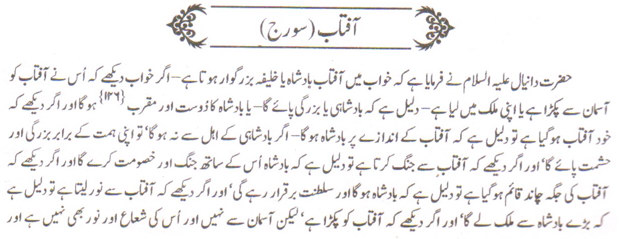 آفتاب (سورج)
حضرت دانیال علیہ السلام نے فرمایا ہے کہ خواب میں آفتاب بادشاہ یا خلیفہ بزرگوار ہوتا ہے – اگر خواب دیکھے کہ اُس نے آفتاب کو
آسمان سے پکڑا ہے یا اپنی ملک میں لیا ہے – دلیل ہے کہ بادشاہی یا بزرگی پائے گا – یا بادشاہ کا دوست اور مقرب {۱۲۶} ہوگا اور اگر دیکھے کہ
خود آفتاب ہو گیا ہے تو دلیل ہے کہ آفتاب کے اندازے پر بادشاہ ہوگا – اگر بادشاہی کے اہل سے نہ ہوگا‘ تو اپنی ہمت کے برابر بزرگی اور
حشمت پائے گا‘ اور اگر دیکھے کہ آفتاب سے جنگ کرتا ہے تو دلیل ہے کہ بادشاہ اُس کے ساتھ جنگ اور خصومت کرے گا اور اگر دیکھے کہ
آفتاب کی جگہ چاند قائم ہو گیا ہے تو دلیل ہے کہ بادشاہ ہوگا اور سلطنت برقرار رہے گی‘ اور اگر دیکھے کہ آفتاب سے نور لیتا ہے تو دلیل ہے
کہ بڑے بادشاہ سے ملک لے گا‘ اور اگر دیکھے کہ آفتاب کو پکڑا ہے‘ لیکن آسمان سے نہیں اور اُس کی شعاع اور نور بھی نہیں ہے اور